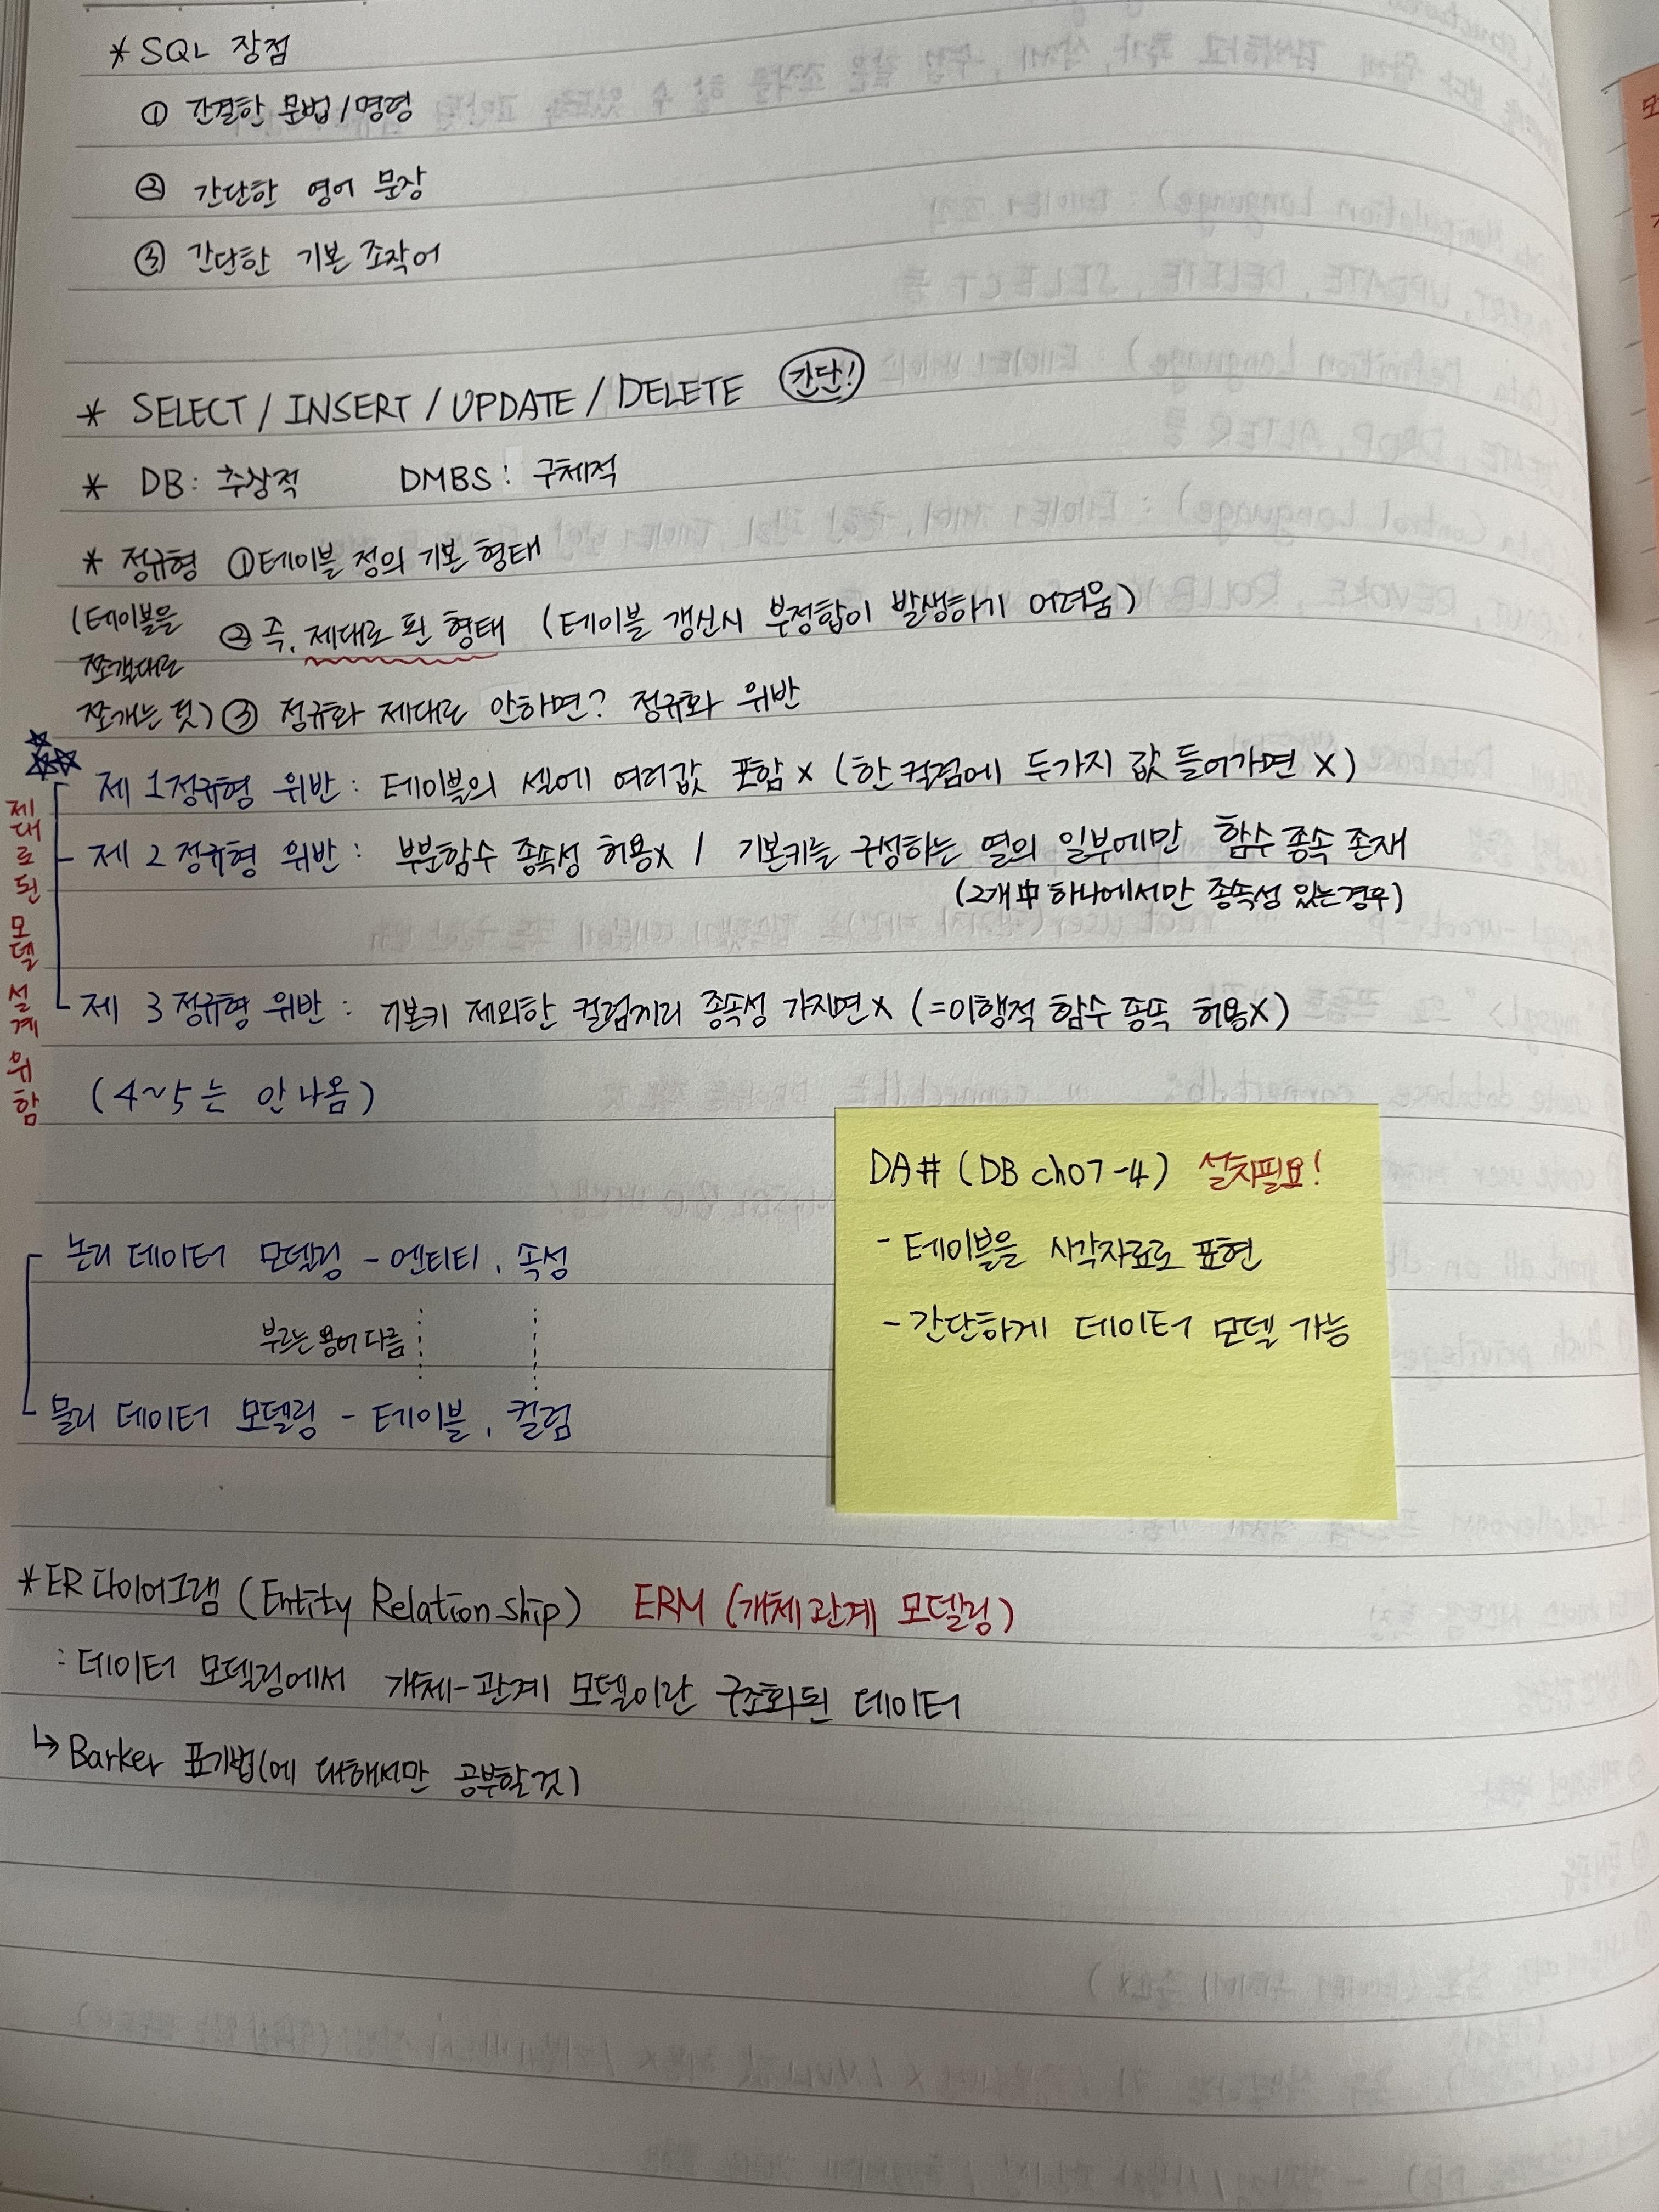 * SQL 장점
① 간결한 문법/명령
② 간단한 영어 문장
③ 간단한 기본 조작어
* SELECT / INSERT / UPDATE / DELETE 간단!
* DB: 추상적 DMBS: 구체적
* 정규형 ①테이블 정의 기본 형태
(테이블을
쪼갤대로
쪼개는 것)
② 즉, 제대로 된 형태 (테이블 갱신시 부정합이 발생하기 어려움)
③ 정규화 제대로 안하면? 정규화 위반
제대로 된 모델 설계 위함
제 1정규형 위반: 테이블의 셀에 여러값 포함 x (한 컬럼에 두가지 값 들어가면 X)
제 2정규형 위반: 부분함수 종속성 허용x / 기본키를 구성하는 열의 일부에만 함수 종속 존재
(2개 中 하나에서만 종속성 있는경우)
제 3정규형 위반: 기본키 제외한 컬럼끼리 종속성 가지면x (=이행적 함수 종속 허용X)
(4~5는 안나옴)
논리 데이터 모델링 - 엔티티, 속성
부르는 용어 다름
물리 데이터 모델링 - 테이블, 컬럼
DA# (DB ch07-4) 설치필요!
- 테이블을 시각자료로 표현
- 간단하게 데이터 모델 가능
* ER 다이어그램 (Entity Relationship) ERM (개체관계 모델링)
: 데이터 모델링에서 개체-관계 모델이란 구조화된 데이터
↳ Barker 표기법(에 대해서만 공부할것)